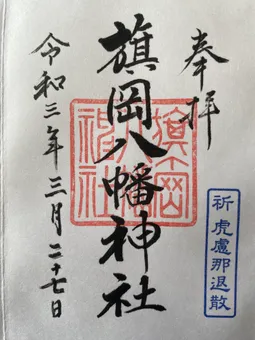 奉拝
旗岡八幡神社
旗岡八幡神社
祈 虎慮那退散
令和三年三月二十七日